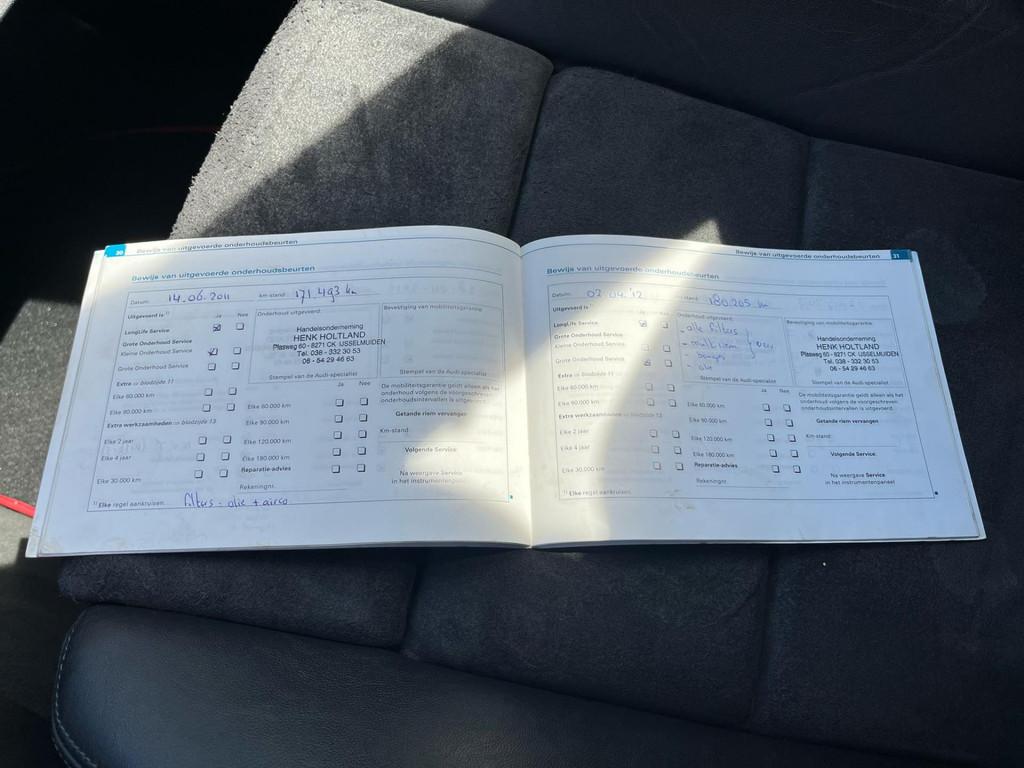 30 Bewijs van uitgevoerde onderhoudsbeurten
Bewijs van uitgevoerde onderhoudsbeurten
Datum: 14.06.2011 km-stand: 171.493 km
Uitgevoerd is: 1) Ja Nee
Onderhoud uitgevoerd:
Bevestiging van mobiliteitsgarantie:
LongLife Service
Grote Onderhoud Service
Kleine Onderhoud Service
Grote Onderhoud Service
Handelsonderneming
HENK HOLTLAND
Plasweg 60 - 8271 CK IJSSELMUIDEN
Tel. 038 - 332 30 53
06 - 54 29 46 63
Stempel van de Audi-specialist
Extra ⇒ bladzijde 11
Elke 60.000 km
Elke 90.000 km
Extra werkzaamheden ⇒ bladzijde 13
Elke 2 jaar
Elke 4 jaar
Elke 30.000 km
Ja Nee
Elke 60.000 km
Elke 90.000 km
Elke 120.000 km
Elke 180.000 km
Reparatie-advies
Rekeningnr.
De mobiliteitsgarantie geldt alleen als het
onderhoud volgens de voorgeschreven
onderhoudsintervallen is uitgevoerd.
Getande riem vervangen
Km-stand:
Volgende Service:
Na weergave Service
in het instrumentenpaneel
1) Elke regel aankruisen. filters - olie + airco
Bewijs van uitgevoerde onderhoudsbeurten 31
Bewijs van uitgevoerde onderhoudsbeurten
Datum: 02.04.'12 km-stand: 180.205 km
Uitgevoerd is: Ja Nee
Onderhoud uitgevoerd:
Bevestiging van mobiliteitsgarantie:
LongLife Service
Grote Onderhoud Service
Kleine Onderhoud Service
Grote Onderhoud Service
- alle filters
- olie
Stempel van de Audi-specialist
Handelsonderneming
HENK HOLTLAND
Plasweg 60 - 8271 CK IJSSELMUIDEN
Tel. 038 - 332 30 53
06 - 54 29 46 63
Stempel van de Audi-specialist
Extra ⇒ bladzijde 11
Elke 60.000 km
Elke 90.000 km
Extra werkzaamheden ⇒ bladzijde 13
Elke 2 jaar
Elke 4 jaar
Elke 30.000 km
Ja Nee
Elke 60.000 km
Elke 90.000 km
Elke 120.000 km
Elke 180.000 km
Reparatie-advies
Rekeningnr.
De mobiliteitsgarantie geldt alleen als het
onderhoud volgens de voorgeschreven
onderhoudsintervallen is uitgevoerd.
Getande riem vervangen
Km-stand:
Volgende Service:
Na weergave Service
in het instrumentenpaneel
1) Elke regel aankruisen.